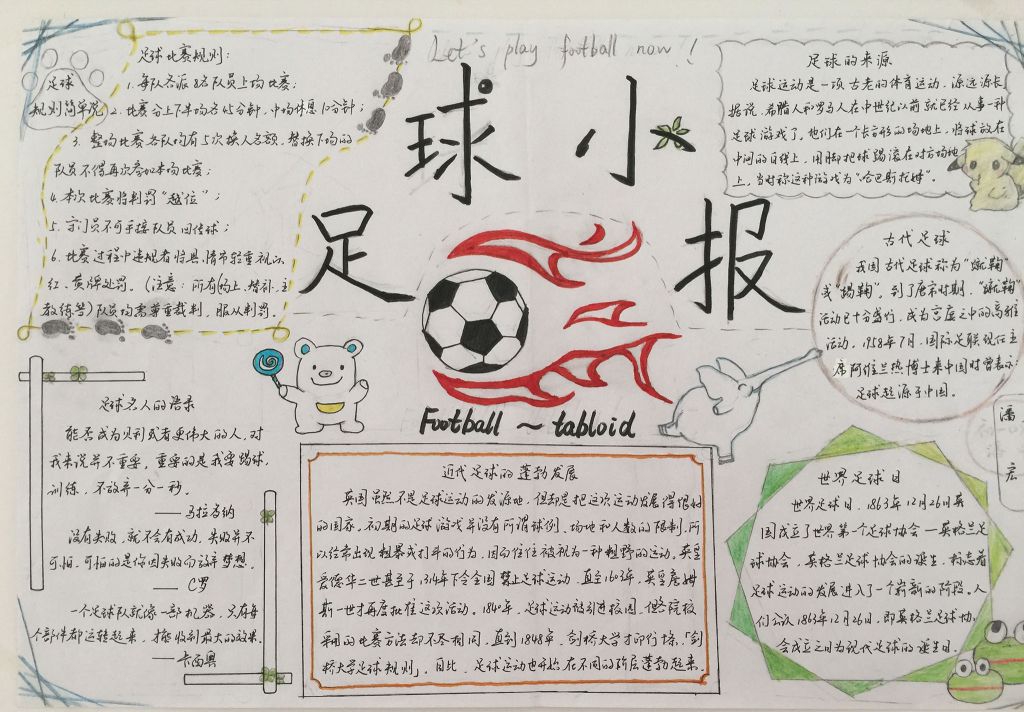 Let's play football now!
足球小报
Football ~ tabloid
足球
规则简单说
足球比赛规则：
1. 每队各派8名队员上场比赛；
2. 比赛分上下半场各45分钟，中场休息10分钟；
3. 整场比赛各队均有5次换人名额，替换下场的
队员不得再次参加本场比赛；
4. 本次比赛将判罚“越位”；
5. 守门员不可手接队员回传球；
6. 比赛过程中违规者将具情节轻重视以
红、黄牌处罚。（注意：所有（场上、替补、主
教练等）队员均需尊重裁判，服从判罚。
足球的来源
足球运动是一项古老的体育运动，源远流长
据说，希腊人和罗马人在中世纪以前就已经从事一种
足球游戏了，他们在一个长方形的场地上，将球放在
中间的白线上，用脚把球踢滚在对方场地
上，当时称这种游戏为“哈巴斯托姆”。
古代足球
我国古代足球称为“蹴鞠”
或“蹋鞠”，到了唐宋时期，“蹴鞠”
活动已十分盛行，成为宫廷之中的高雅
活动，1958年7月，国际足联现任主
席阿维兰热博士来中国时曾表示：
足球起源于中国。
足球名人的语录
能否成为贝利或者更伟大的人，对
我来说并不重要，重要的是我要踢球，
训练，不放弃一分一秒。
——马拉多纳
没有失败，就不会有成功，失败并不
可怕，可怕的是你因失败而放弃梦想。
——C罗
一个足球队就像一部机器，只有每
个部件都运转起来，才能收到最大的效果。
——卡西奥
近代足球的蓬勃发展
英国虽然不是足球运动的发源地，但却是把这项运动发展得很好
的国家，初期的足球游戏并没有所谓球例、场地和人数的限制，所
以经常出现粗暴或打斗的行为，因而往往被视为一种粗野的运动。英皇
爱德华二世甚至于1314年下令全国禁止足球运动，直至1603年，英皇詹姆
斯一世才再度批准这次活动。1840年，足球运动被引进校园，但各院校
采用的比赛方法却不尽相同，直到1848年，剑桥大学才印行场「剑
桥大学足球规则」，自此，足球运动也开始在不同的阶层蓬勃起来。
世界足球日
世界足球日，1863年12月26日英
国成立了世界第一个足球协会—英格兰足
球协会，英格兰足球协会的诞生，标志着
足球运动的发展进入了一个崭新的阶段。人
们公认1863年12月26日，即英格兰足球协
会成立之日为现代足球的诞生日。
潘
宏